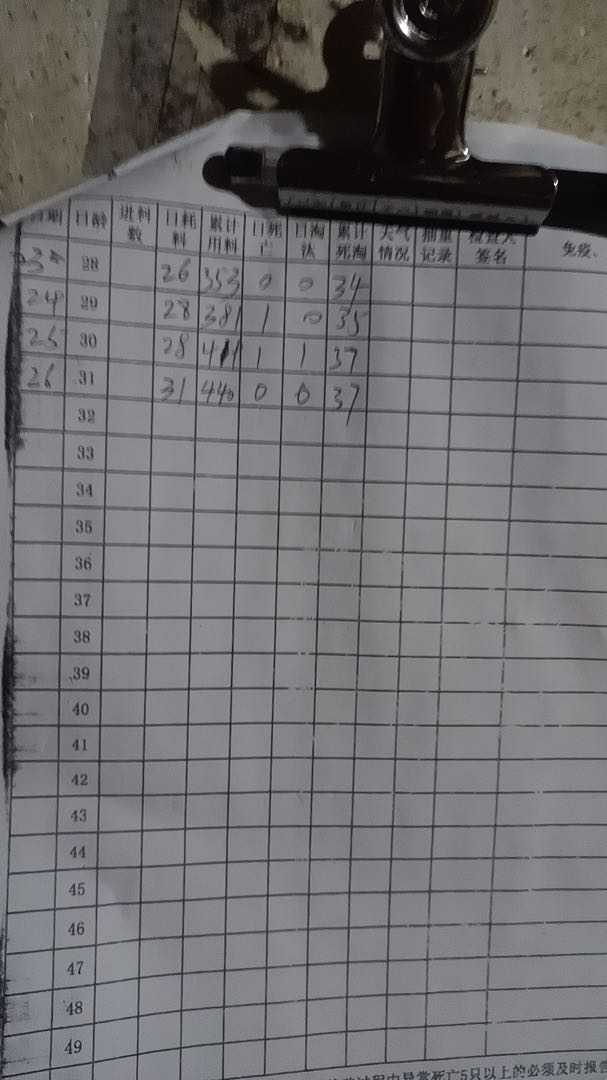 日期 日龄 进料数 日耗料 累计用料 日死亡 日淘汰 累计死淘 天气情况 抽重记录 检查人签名 免疫、
28 26 353 0 0 34
24 29 28 381 1 0 35
25 30 28 411 1 1 37
26 31 31 440 0 0 37
32
33
34
35
36
37
38
39
40
41
42
43
44
45
46
47
48
49
过程中异常死亡5只以上的必须及时报告